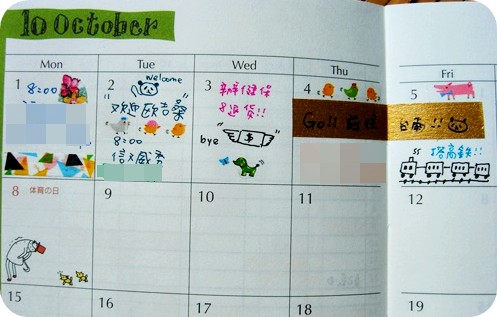 10 October
Mon Tue Wed Thu Fri
1 8:00
2 Welcome
歡迎歐吉桑
8:00
信义威秀
3 辦健保
&退貨!!
bye $
4
Go!! 前往
5
台南!!
搭高鐵!!
8 体育の日
9 10 11 12
15 16 17 18 19